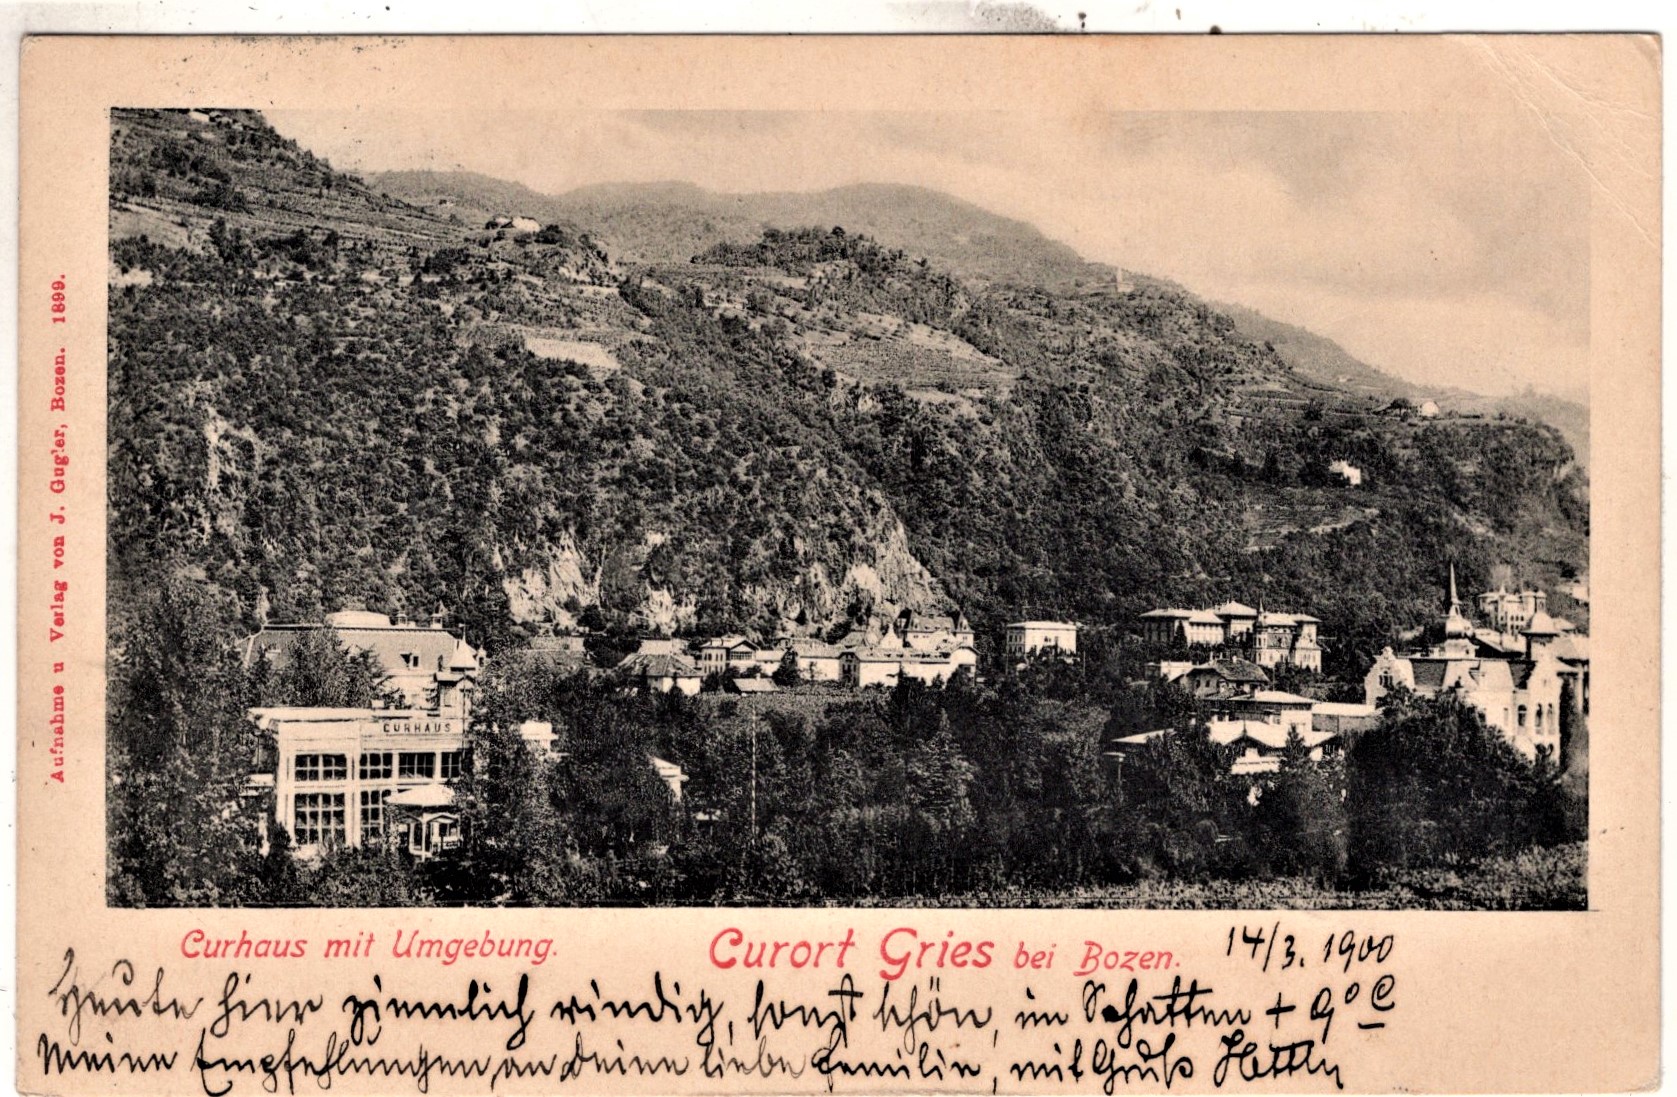 CURHAUS
Aufnahme u Verlag von J. Gugler, Bozen. 1899.
Curhaus mit Umgebung.
Curort Gries bei Bozen.
14/3. 1900
Heute hier ziemlich windig, sonst schön, im Schatten + 9° C
Meine Empfehlungen an Deine liebe Familie, mit Gruß